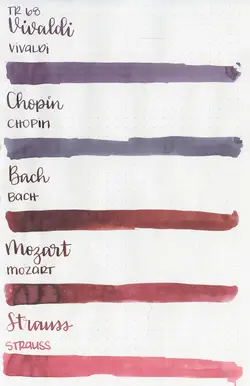 TR 68
Vivaldi
VIVALDI
Chopin
CHOPIN
Bach
BACH
Mozart
MOZART
Strauss
STRAUSS